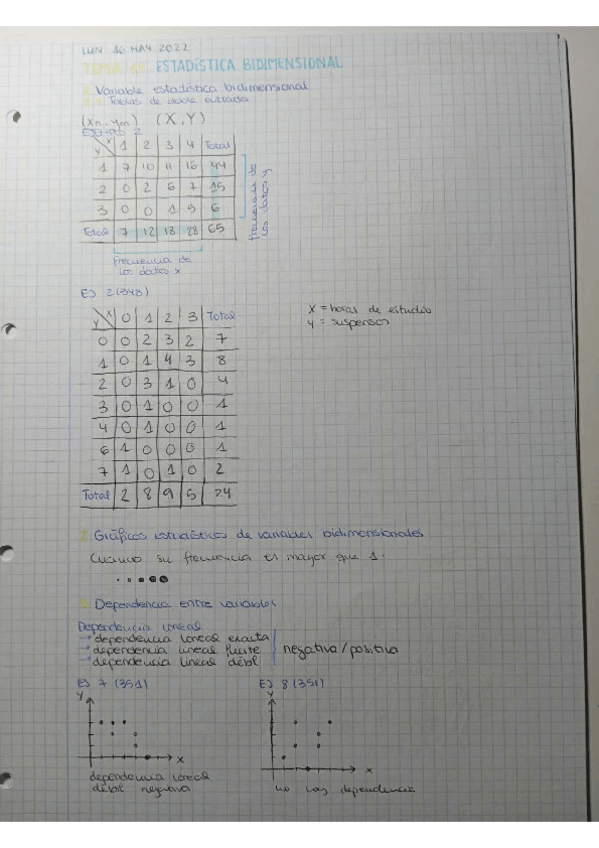 LUN 16 MAY 2022
TEMA ESTADÍSTICA BIDIMENSIONAL
Variable estadística bidimensional
Tablas de doble entrada
(Xn, Ym) (X,Y)
EJEMPLO 2
Y X 1 2 3 4 Total
1 7 10 11 16 44
2 0 2 6 7 15
3 0 0 1 5 6
Total 7 12 18 28 65
Frecuencia de los datos y
Frecuencia de
los datos x
EJ 2(348)
X = horas de estudio
Y = suspensos
Y X 0 1 2 3 Total
0 0 2 3 2 7
1 0 1 4 3 8
2 0 3 1 0 4
3 0 1 0 0 1
4 0 1 0 0 1
6 1 0 0 0 1
7 1 0 1 0 2
Total 2 8 9 5 24
2. Gráficos estadísticos de variables bidimensionales
Cuando su frecuencia es mayor que 1:
3. Dependencia entre variables
Dependencia lineal
→ dependencia lineal exacta
→ dependencia lineal fuerte negativa/positiva
→ dependencia lineal débil
EJ 7 (351) EJ 8 (351)
Y Y
X X
dependencia lineal
débil negativa
no hay dependencia